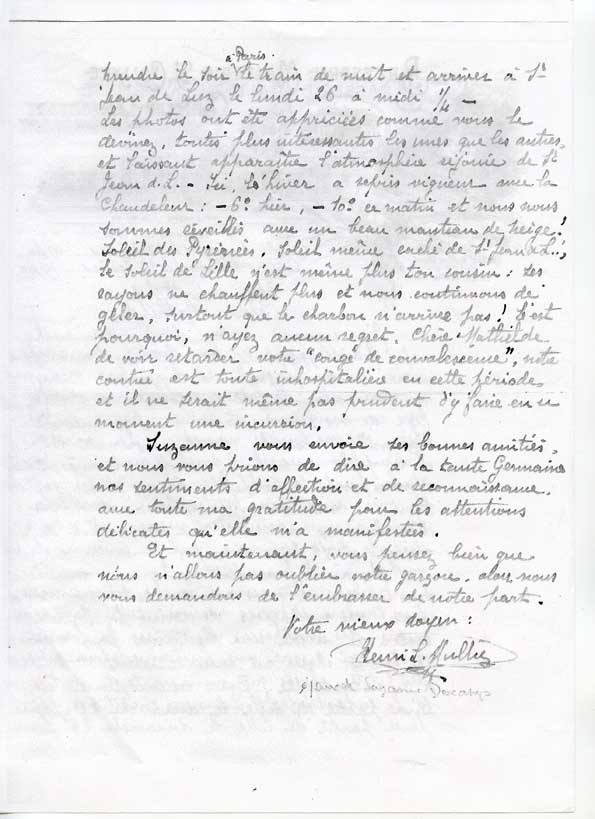 à Paris.
prendre le soir le train de nuit et arriver à St
Jean de Luz le lundi 26 à midi 1/4 –
Les photos ont été appriciées comme vous le
devinez, toutes plus intéressantes les unes que les autres
et laissant apparaître l'atmosphère réjouie de St
Jean d.L. – Ici, l'hiver a repris vigueur avec la
Chandeleur : – 6° hier, – 10° ce matin et nous nous
sommes réveillés avec un beau manteau de neige !
Soleil des Pyrénées, Soleil même caché de St Jean d.L.,
le soleil de Lille n'est même plus ton cousin : ses
rayons ne chauffent plus et nous continuons de
geler, surtout que le charbon n'arrive pas ! C'est
pourquoi, n'ayez aucun regret, Chère Mathilde
de voir retarder votre "congé de convalescence", notre
contrée est toute inhospitalière en cette période
et il ne serait même pas prudent d'y faire en ce
moment une incursion.
Suzanne vous envoie ses bonnes amitiés,
et nous vous prions de dire à la tante Germaine
nos sentiments d'affection et de reconnaissance,
avec toute ma gratitude pour les attentions
délicates qu'elle m'a manifestées.
Et maintenant, vous pensez bien que
nous n'allons pas oublier notre garçon, alors nous
vous demandons de l'embrasser de notre part.
Votre vieux doyen :
Henri L. Mulliez
époux de Suzanne